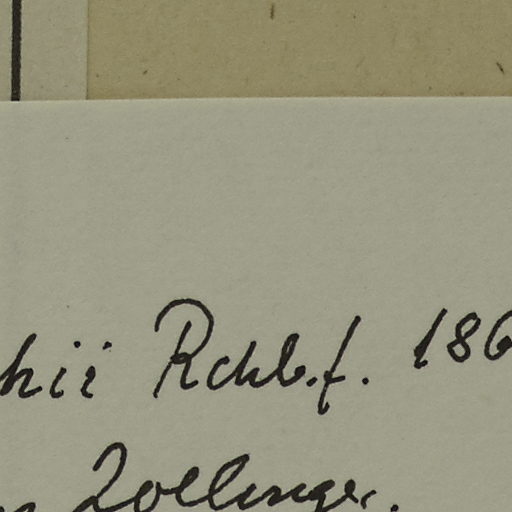 hii Rchb.f. 186
Zollinger.